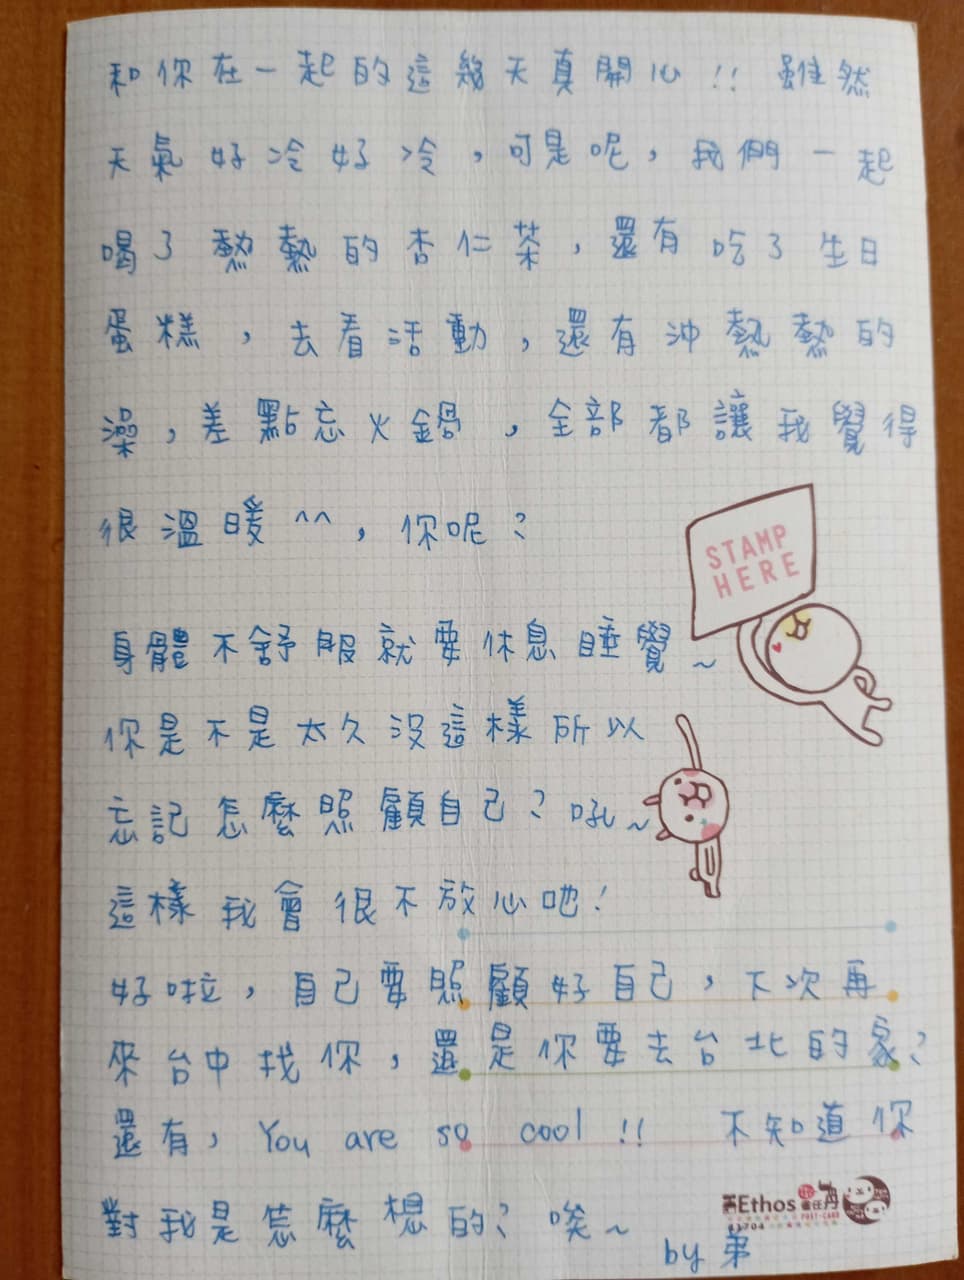 和你在一起的這幾天真開心!! 雖然
天氣好冷好冷，可是呢，我們一起
喝了熱熱的杏仁茶，還有吃了生日
蛋糕，去看活動，還有沖熱熱的
澡，差點忘火鍋，全部都讓我覺得
很溫暖^^，你呢？
STAMP
HERE
身體不舒服就要休息睡覺~
你是不是太久沒這樣所以
忘記怎麼照顧自己？吼~
這樣我會很不放心吔！
好啦，自己要照顧好自己，下次再
來台中找你，還是你要去台北的家？
還有，You are so cool!! 不知道你
對我是怎麼想的？唉~
Ethos
POST-CARD
by 弟